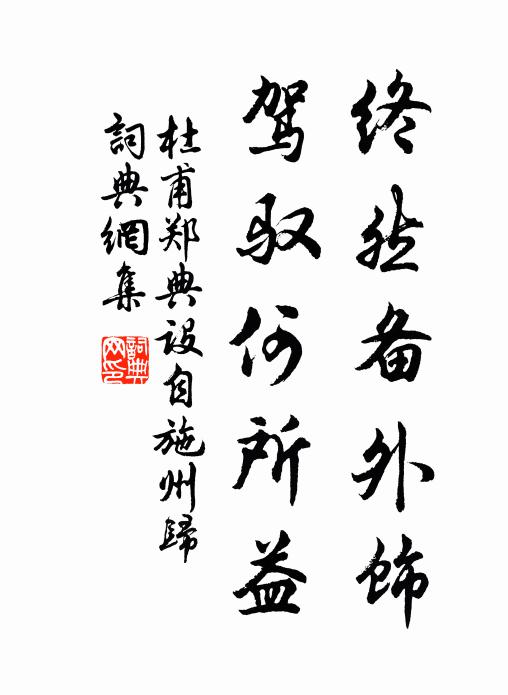 终然备外饰
驾驭何所益
杜甫郑典设自施州歸
詞典網集